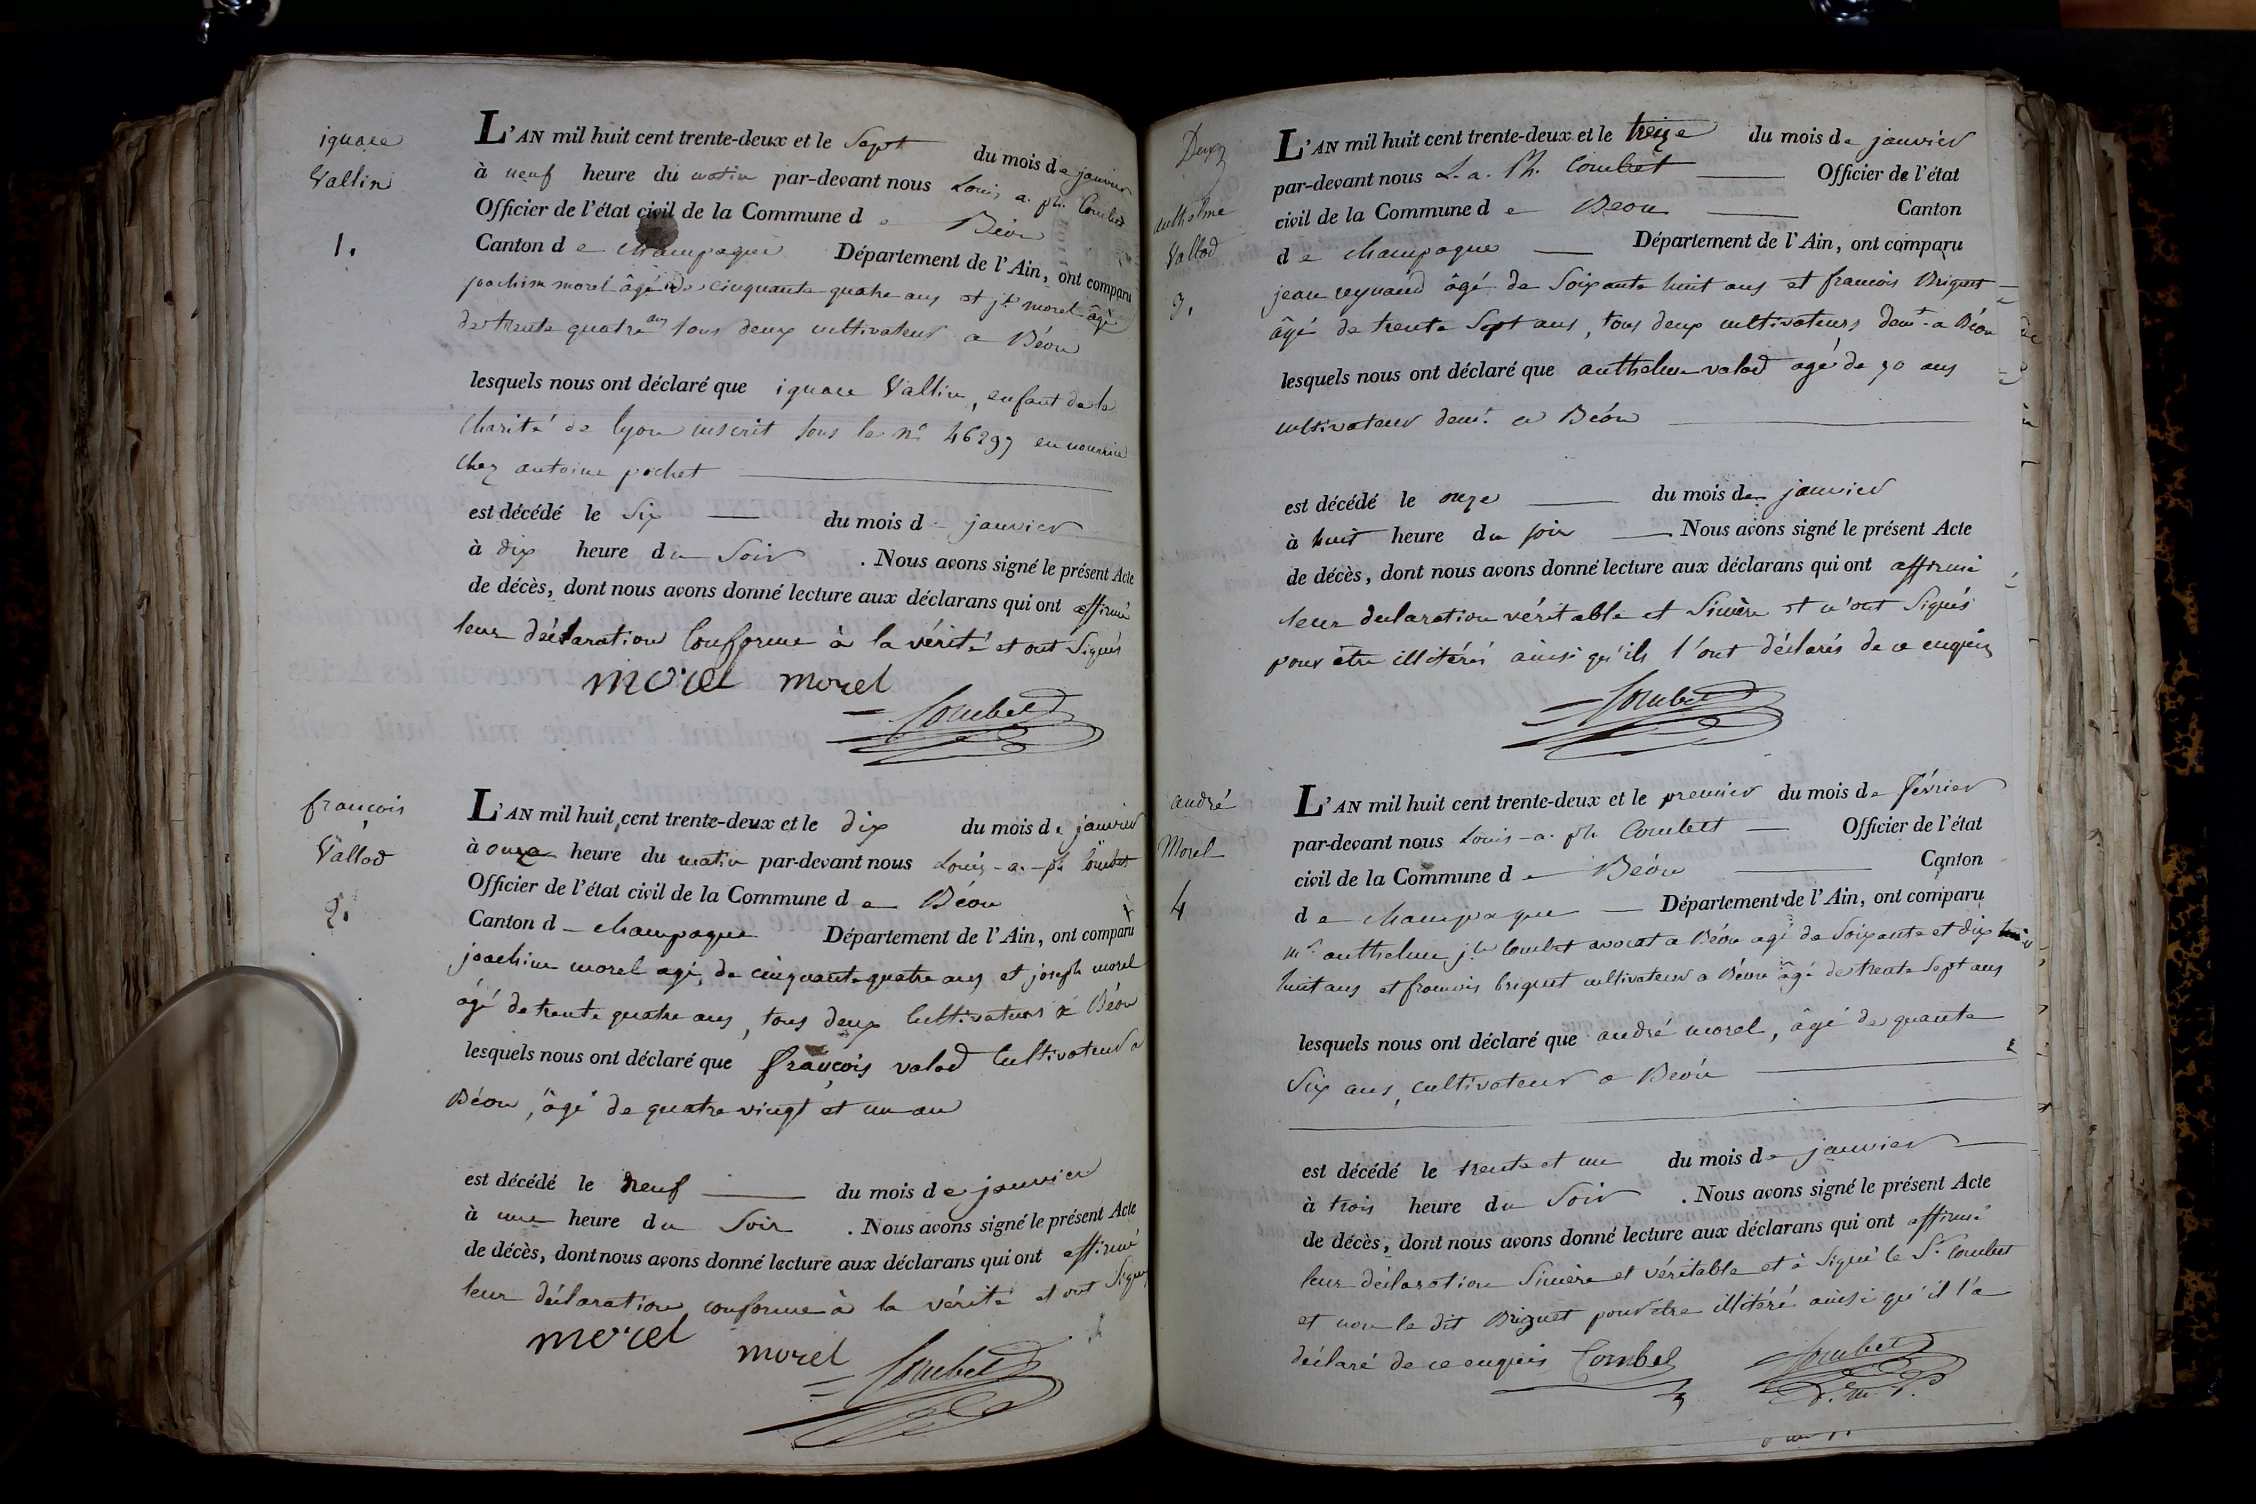 ignace
Vallin
1.
L'AN mil huit cent trente-deux et le Sept du mois de janvier
à neuf heure du matin par-devant nous Louis a. ph. Combet
Officier de l'état civil de la Commune de Béon
Canton de champagne Département de l'Ain, ont comparu
joachim morel âgé de cinquante quatre ans et jh morel âgé
de trente quatre ans tous deux cultivateurs a Béon
lesquels nous ont déclaré que ignace Vallin, enfant de la
charité de lyon inscrit sous le n° 46297 en nourrice
chez antoine pochet
est décédé le Six du mois de janvier
à dix heure du Soir . Nous avons signé le présent Acte
de décès, dont nous avons donné lecture aux déclarans qui ont affirmé
leur déclaration conforme à la vérité et ont Signés
morel morel
Combet
françois
Vallod
2.
L'AN mil huit cent trente-deux et le dix du mois de janvier
à onze heure du matin par-devant nous Louis - a. - ph Combet
Officier de l'état civil de la Commune de Béon
Canton d champagne Département de l'Ain, ont comparu
joachim morel agé de cinquante quatre ans et joseph morel
âgé de trente quatre ans, tous deux cultivateurs a Béon
lesquels nous ont déclaré que françois valod cultivateur a
Béon, âgé de quatre vingt et un an
est décédé le neuf du mois de janvier
à une heure du Soir . Nous avons signé le présent Acte
de décès, dont nous avons donné lecture aux déclarans qui ont affirmé
leur déclaration conforme à la vérité et ont Signés
morel morel Combet
anthelme
Vallod
3.
L'AN mil huit cent trente-deux et le treize du mois de janvier
par-devant nous L. a. Ph. Combet Officier de l'état
civil de la Commune de Béon Canton
de champagne Département de l'Ain, ont comparu
jean reynaud âgé de Soixante huit ans et francois Briguet
âgé de trente Sept ans, tous deux cultivateurs demt. a Béon
lesquels nous ont déclaré que anthelme valod agé de 70 ans
cultivateur demt. a Béon
est décédé le onze du mois de janvier
à huit heure du soir Nous avons signé le présent Acte
de décès, dont nous avons donné lecture aux déclarans qui ont affirmé
leur declaration véritable et Sincère et n'ont Signés
pour être illitérés ainsi qu'ils l'ont déclarés de ce enquis
Combet
andré
Morel
4
L'AN mil huit cent trente-deux et le premier du mois de février
par-devant nous Louis - a. ph Combet Officier de l'état
civil de la Commune de Béon Canton
de champagne Département de l'Ain, ont comparu
mr. anthelme jh Combet avocat a Béon agé de Soixante et dix
huit ans et francois briguet cultivateur a Béon âgé de trente Sept ans
lesquels nous ont déclaré que andré morel, âgé de quarante
Six ans, cultivateur a Béon
est décédé le trente et un du mois de janvier
à trois heure du Soir . Nous avons signé le présent Acte
de décès, dont nous avons donné lecture aux déclarans qui ont affirmé
leur déclaration Sincère et véritable et à Signé le Sr. Combet
et non le dit Briguet pour être illitéré ainsi qu'il l'a
déclaré de ce enquis Combet Combet